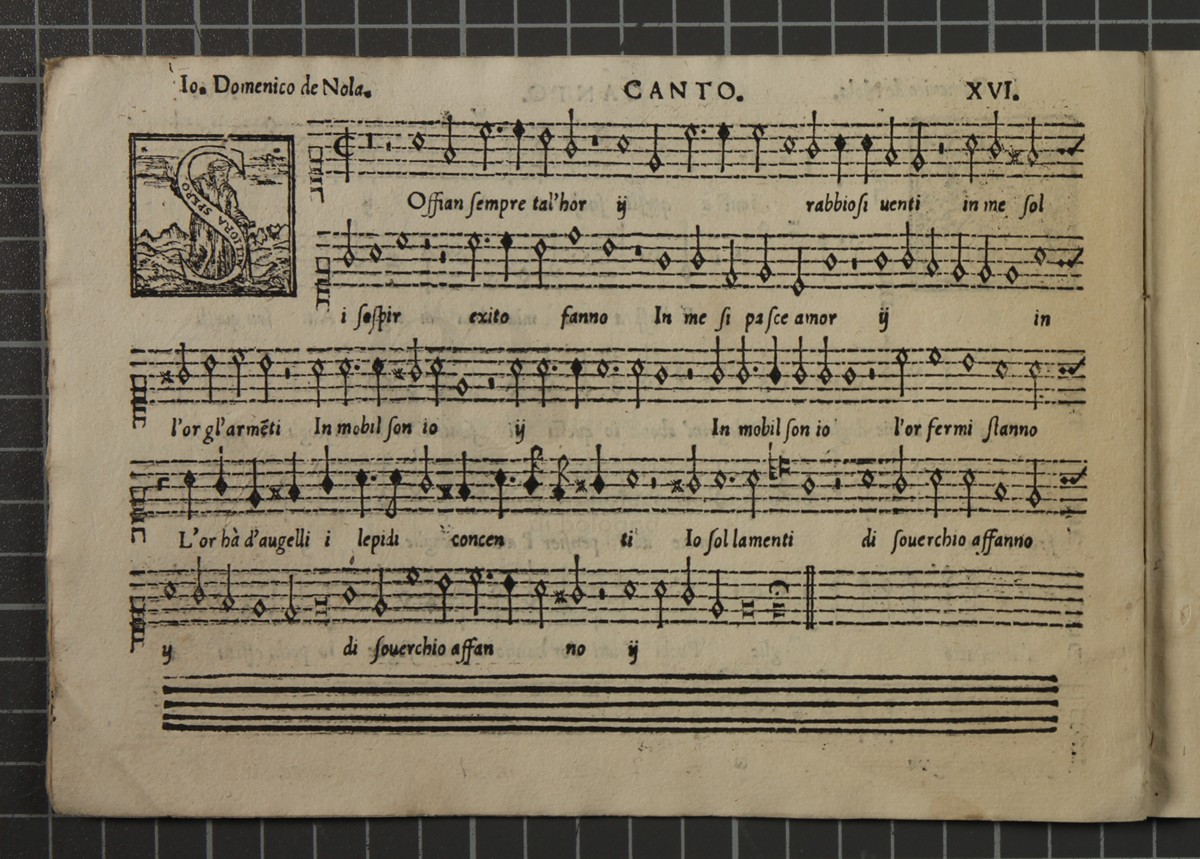 Io. Domenico de Nola. CANTO. XVI.
S
SPERO.
Offian ſempre tal'hor ij rabbioſi uenti in me ſol
i ſoſpir exito fanno In me ſi paſce amor ij in
l'or gl'armẽti In mobil ſon io ij In mobil ſon io l'or fermi ſtanno
L'or hà d'augelli i lepidi concen ti Io ſol lamenti di ſouerchio affanno
ij di ſouerchio affan no ij